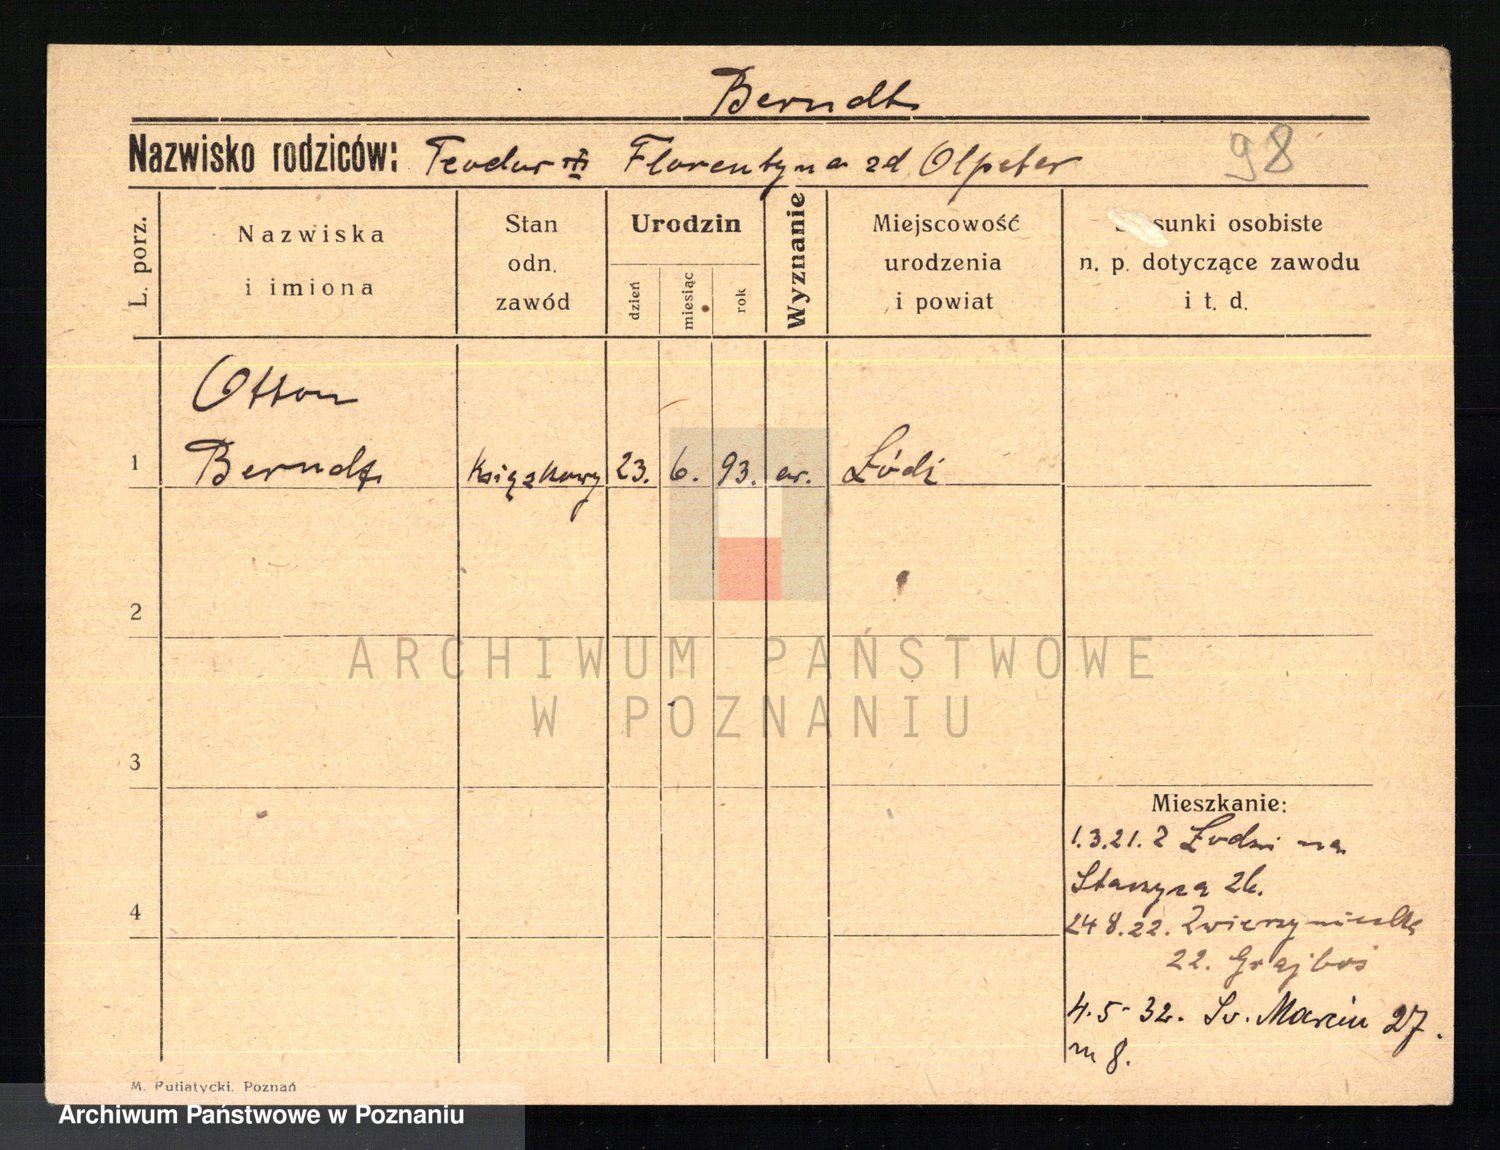 Berndt
Nazwisko rodziców: Teodor Florentyna zd Olpeter
98
L. porz.
Nazwiska
i imiona
Stan
odn.
zawód
Urodzin
dzień
miesiąc
rok
Wyznanie
Miejscowość
urodzenia
i powiat
sunki osobiste
n. p. dotyczące zawodu
i t. d.
Otton
1 Berndt Książkowy 23. 6. 93. ew. Łódź
2
3
4
Mieszkanie:
1.3.21. z Łodzi na
Staszyca 26.
24 8.22. Zwierzyniecka
22. Grajboś
4.5.32. Św. Marcin 27.
m 8.
M. Putiatycki. Poznań
ARCHIWUM PAŃSTWOWE
W POZNANIU
Archiwum Państwowe w Poznaniu